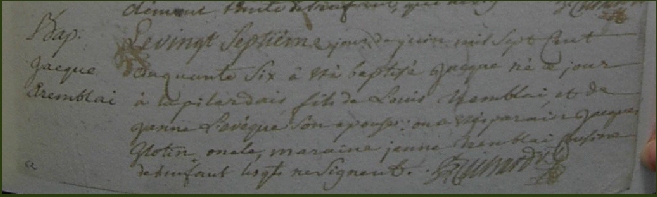 Bap:
Jacque
Tremblai
Le vingt Septième jour de juin mil Sept Cent
Cinquante Six à été baptisé Jacque né ce jour
à la pilardais fils de Louis Tremblai, et de
janne Levêque Son epouse: on a été parain Jacque
oncle, maraine jeanne Tremblai Cousine
de lenfant lesqls ne Signent.
a